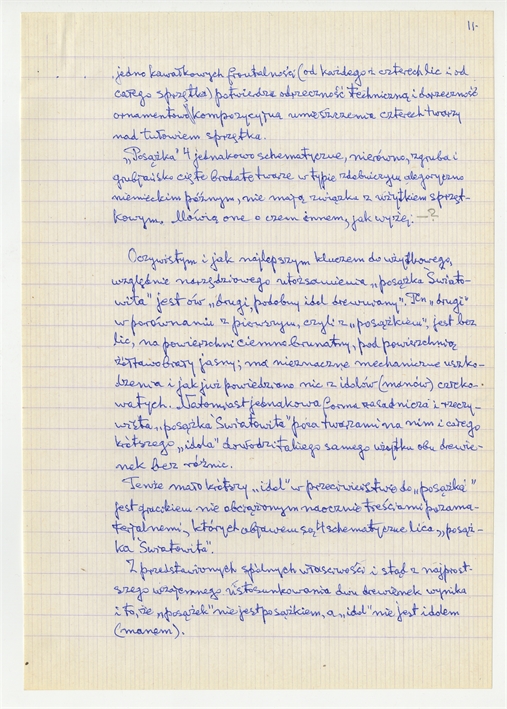 11.
jedno kawałkowych frontalności (od każdego z czterech lic i od
całego sprzętka) potwierdza odrzeczność techniczną i dorzeczność
ornamentowo kompozycyjną umieszczenia czterech twarzy
nad tułowiem sprzętka.
„Posążka" 4 jednakowo schematyczne, nierówno, zgruba i
grubjańsko cięte brodate twarze w typie zdobniczym alegoryczno
niemieckim późnym, nie mają związku z użytkiem sprzęt-
kowym. Mówią one o czem innem, jak wyżej. —?
Oczywistym i jak najlepszym kluczem do użytkowego,
względnie narzędziowego utożsamienia „posążka Światо-
wita" jest ów „drugi, podobny idol drewniany". Ten „drugi"
w porównaniu z pierwszym, czyli z „posążkiem", jest bez
lic, na powierzchni ciemno brunatny, pod powierzchnią
żółtawo szary jasny; ma nieznaczne mechaniczne uszko-
dzenia i jak już powiedziano nic z idolów (manów) człeko-
watych. Natomiast jednakowa forma zasadnicza i rzeczy-
wista „posążka Światowita" poza twarzami na nim i całego
krótszego „idola" dowodzi takiego samego użytku obu drewie-
nek bez różnic.
Tenże mało krótszy „idol" w przeciwieństwie do „posążka"
jest gracikiem nie obciążonym naocznie treściami pozama-
terjalnemi, których objawem są 4 schematyczne lica „posąż-
ka Światowita".
Z przedstawionych spólnych właściwości i stąd z najprost-
szego wzajemnego ustosunkowania dwu drewienek wynika
i to, że „posążek" nie jest posążkiem, a „idol" nie jest idolem
(manem).